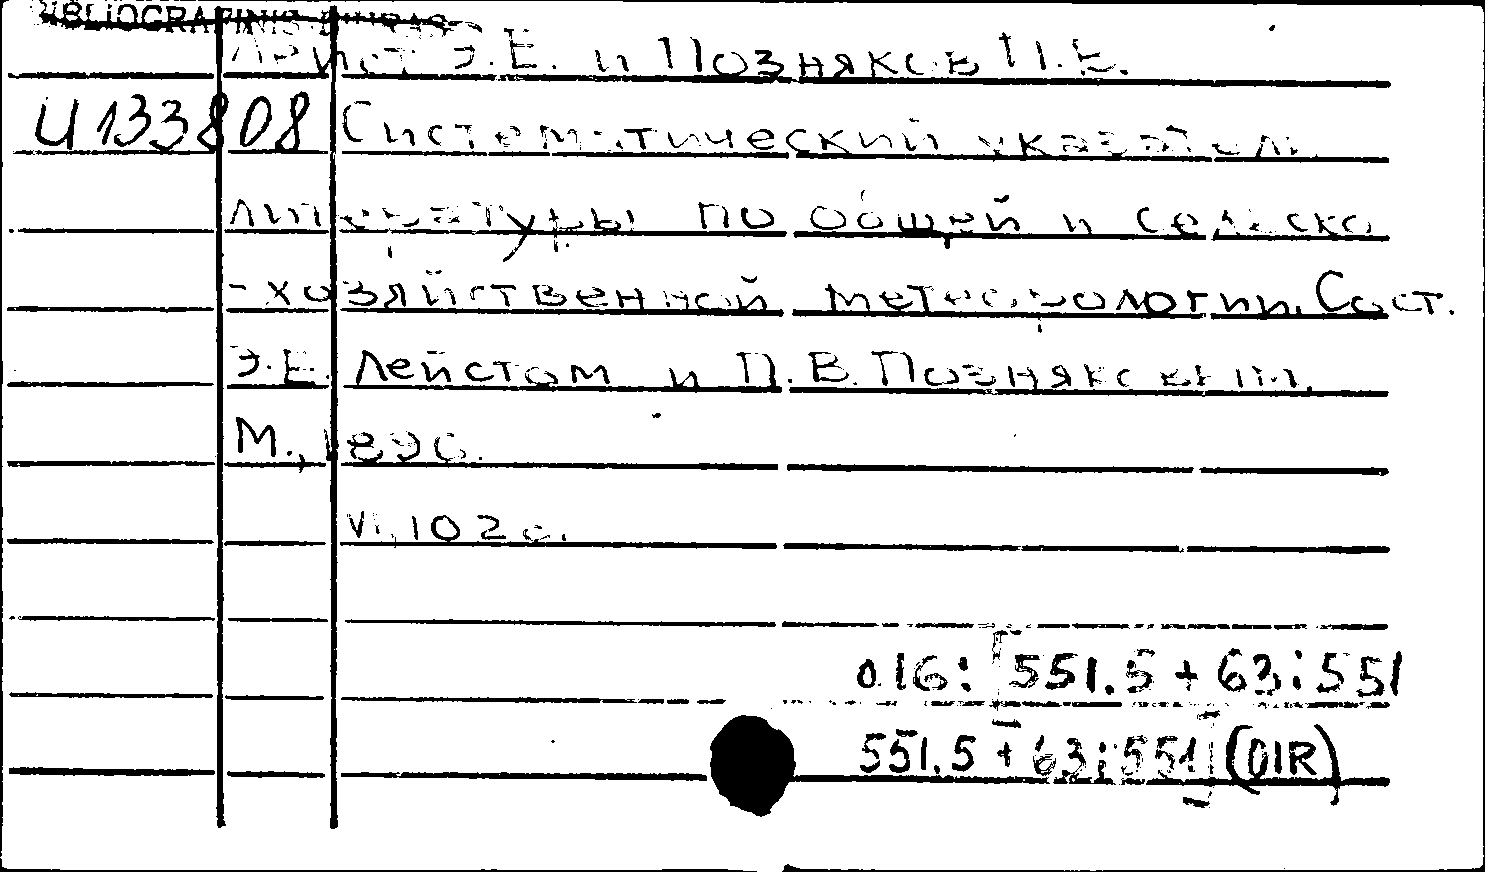 BIBLIOGRAFINIS
Лейст Э.Е. и Позняков П.В.
И133808 Систематический указатель
литературы по общей и сельско
-хозяйственной метеорологии. Сост.
Э.Е. Лейстом и П.В. Позняковым.
М., 1896.
VI, 102 с.
016: [551.5 + 63:551
551.5 + 63:551] (01R)